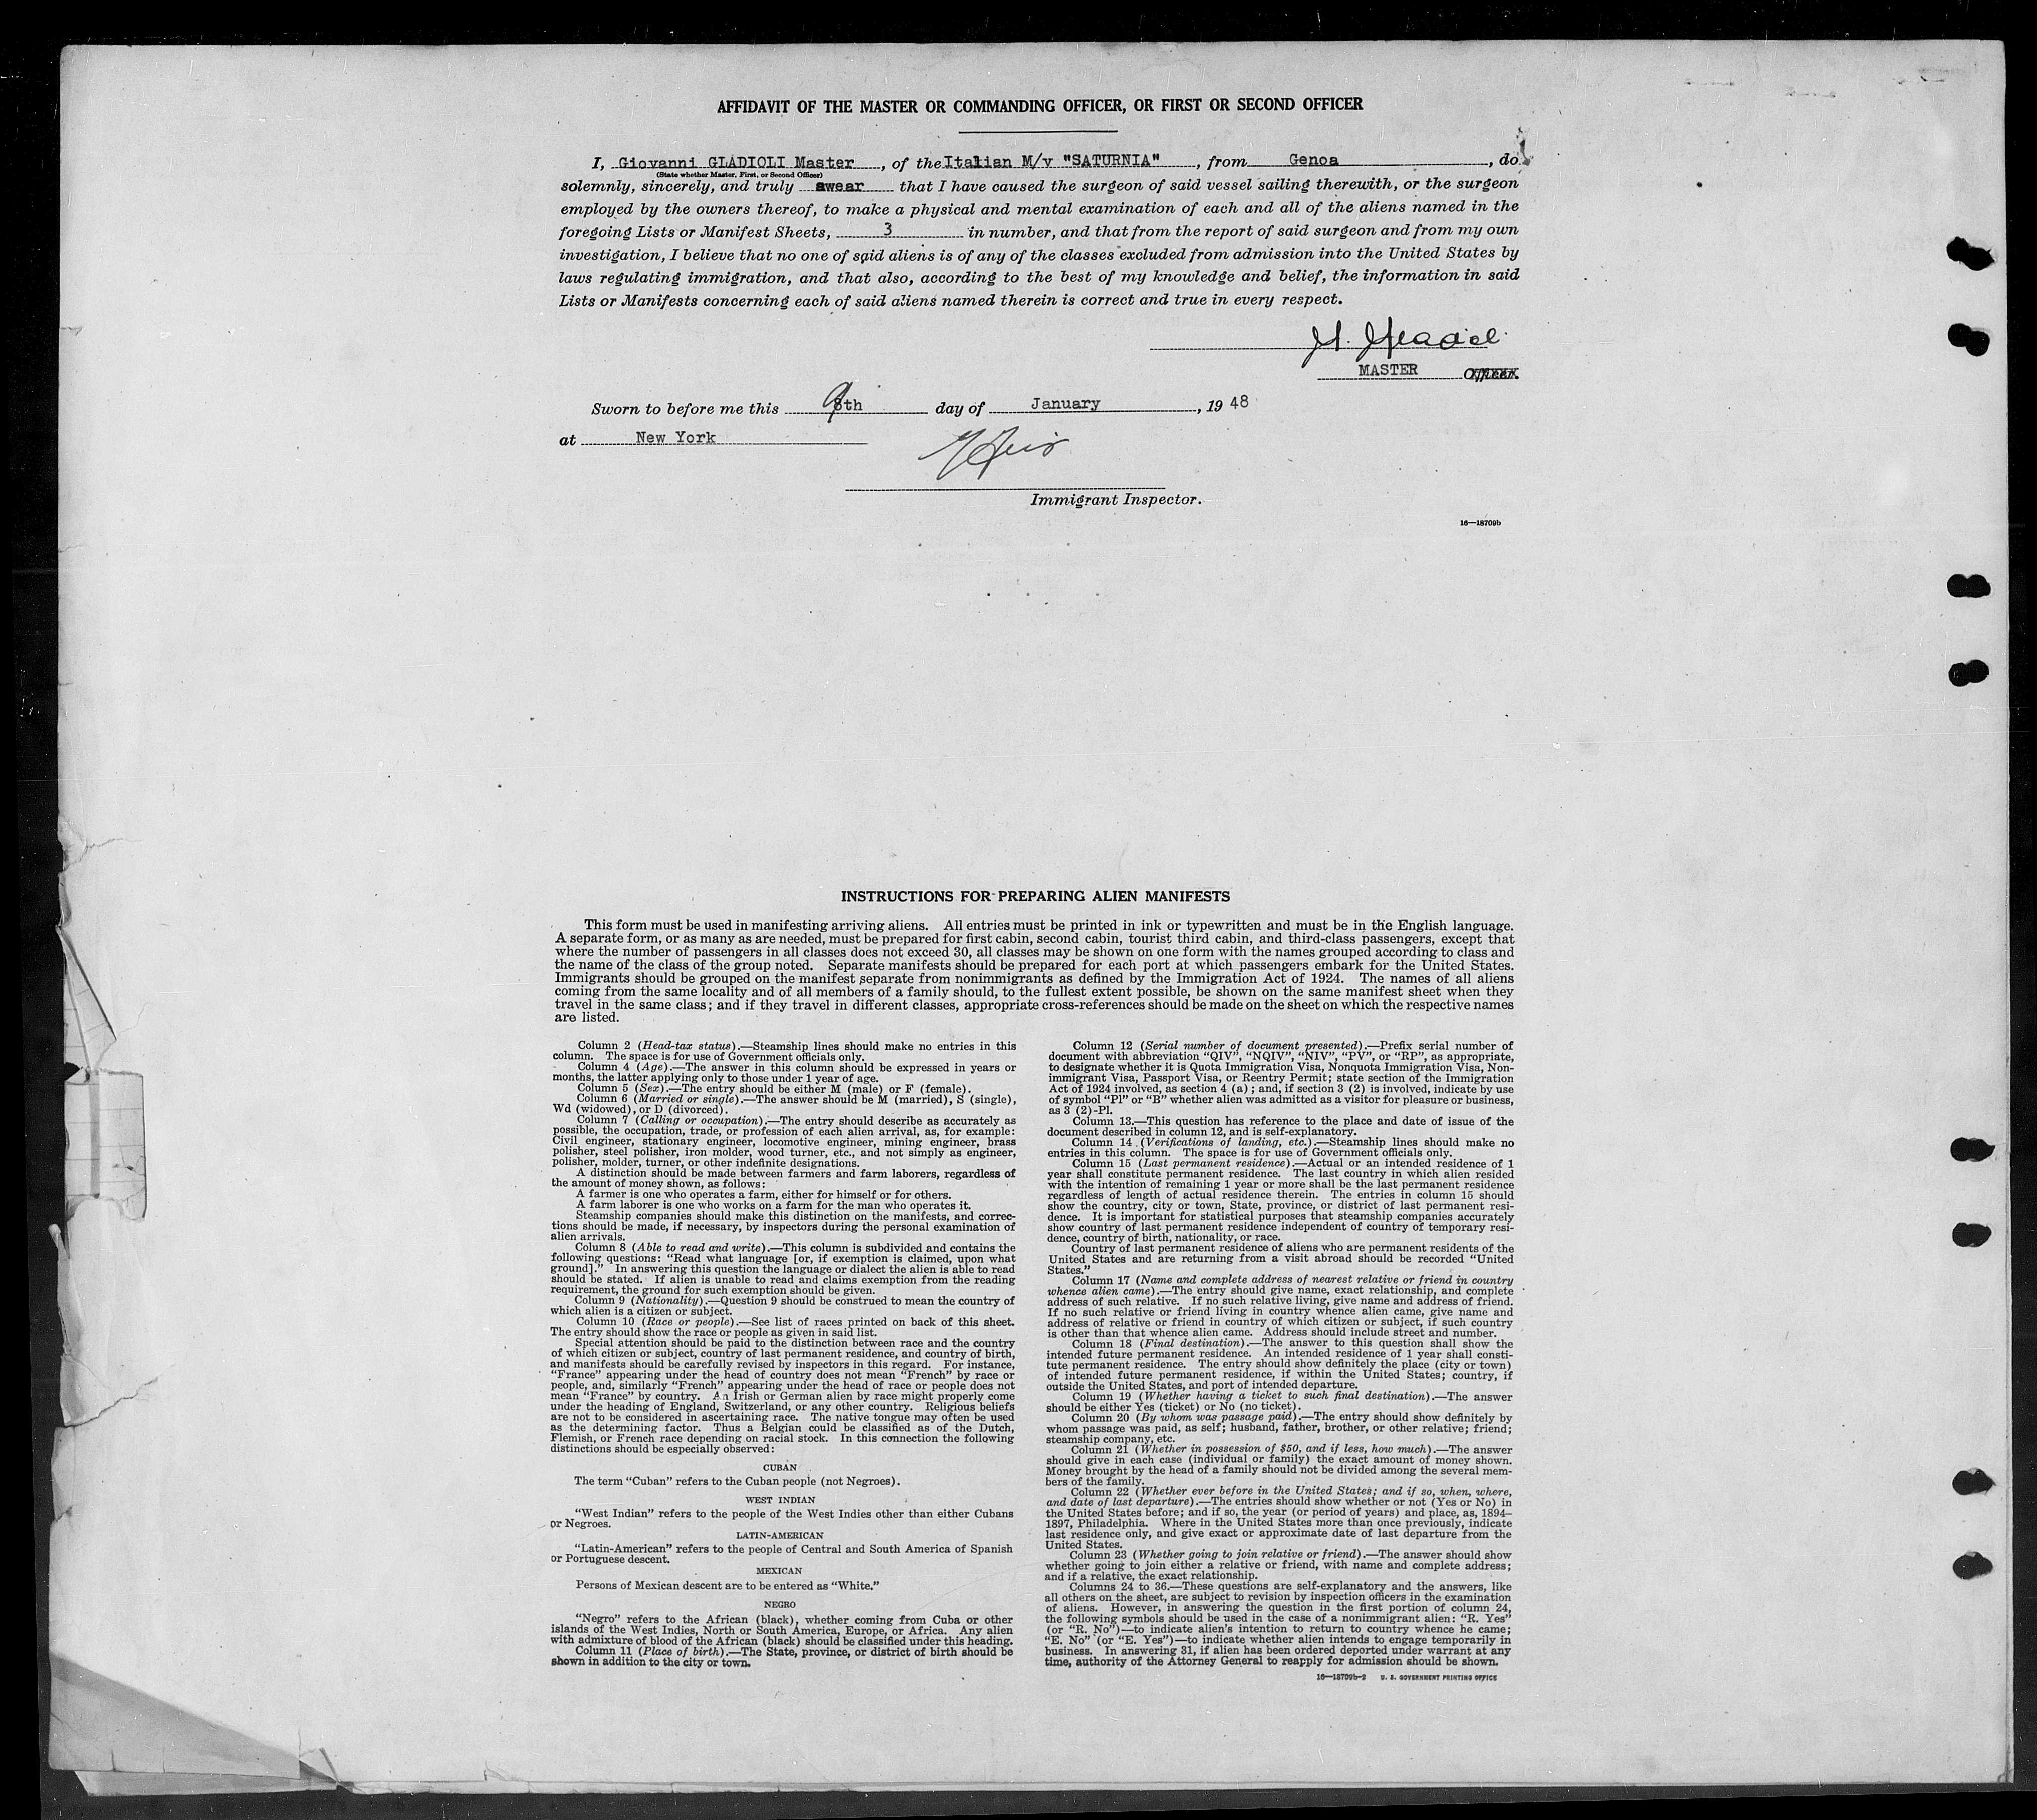 AFFIDAVIT OF THE MASTER OR COMMANDING OFFICER, OR FIRST OR SECOND OFFICER
I, Giovanni GLADIOLI Master, of the Italian M/v "SATURNIA", from Genoa, do
(State whether Master, First, or Second Officer)
solemnly, sincerely, and truly swear that I have caused the surgeon of said vessel sailing therewith, or the surgeon
employed by the owners thereof, to make a physical and mental examination of each and all of the aliens named in the
foregoing Lists or Manifest Sheets, 3 in number, and that from the report of said surgeon and from my own
investigation, I believe that no one of said aliens is of any of the classes excluded from admission into the United States by
laws regulating immigration, and that also, according to the best of my knowledge and belief, the information in said
Lists or Manifests concerning each of said aliens named therein is correct and true in every respect.
MASTER Officer.
Sworn to before me this 9th day of January, 19 48
at New York
Immigrant Inspector.
16—18709b
INSTRUCTIONS FOR PREPARING ALIEN MANIFESTS
This form must be used in manifesting arriving aliens. All entries must be printed in ink or typewritten and must be in the English language.
A separate form, or as many as are needed, must be prepared for first cabin, second cabin, tourist third cabin, and third-class passengers, except that
where the number of passengers in all classes does not exceed 30, all classes may be shown on one form with the names grouped according to class and
the name of the class of the group noted. Separate manifests should be prepared for each port at which passengers embark for the United States.
Immigrants should be grouped on the manifest separate from nonimmigrants as defined by the Immigration Act of 1924. The names of all aliens
coming from the same locality and of all members of a family should, to the fullest extent possible, be shown on the same manifest sheet when they
travel in the same class; and if they travel in different classes, appropriate cross-references should be made on the sheet on which the respective names
are listed.
Column 2 (Head-tax status).—Steamship lines should make no entries in this
column. The space is for use of Government officials only.
Column 4 (Age).—The answer in this column should be expressed in years or
months, the latter applying only to those under 1 year of age.
Column 5 (Sex).—The entry should be either M (male) or F (female).
Column 6 (Married or single).—The answer should be M (married), S (single),
Wd (widowed), or D (divorced).
Column 7 (Calling or occupation).—The entry should describe as accurately as
possible, the occupation, trade, or profession of each alien arrival, as, for example:
Civil engineer, stationary engineer, locomotive engineer, mining engineer, brass
polisher, steel polisher, iron molder, wood turner, etc., and not simply as engineer,
polisher, molder, turner, or other indefinite designations.
A distinction should be made between farmers and farm laborers, regardless of
the amount of money shown, as follows:
A farmer is one who operates a farm, either for himself or for others.
A farm laborer is one who works on a farm for the man who operates it.
Steamship companies should make this distinction on the manifests, and correc-
tions should be made, if necessary, by inspectors during the personal examination of
alien arrivals.
Column 8 (Able to read and write).—This column is subdivided and contains the
following questions: "Read what language [or, if exemption is claimed, upon what
ground]." In answering this question the language or dialect the alien is able to read
should be stated. If alien is unable to read and claims exemption from the reading
requirement, the ground for such exemption should be given.
Column 9 (Nationality).—Question 9 should be construed to mean the country of
which alien is a citizen or subject.
Column 10 (Race or people).—See list of races printed on back of this sheet.
The entry should show the race or people as given in said list.
Special attention should be paid to the distinction between race and the country
of which citizen or subject, country of last permanent residence, and country of birth,
and manifests should be carefully revised by inspectors in this regard. For instance,
"France" appearing under the head of country does not mean "French" by race or
people, and, similarly "French" appearing under the head of race or people does not
mean "France" by country. An Irish or German alien by race might properly come
under the heading of England, Switzerland, or any other country. Religious beliefs
are not to be considered in ascertaining race. The native tongue may often be used
as the determining factor. Thus a Belgian could be classified as of the Dutch,
Flemish, or French race depending on racial stock. In this connection the following
distinctions should be especially observed:
CUBAN
The term "Cuban" refers to the Cuban people (not Negroes).
WEST INDIAN
"West Indian" refers to the people of the West Indies other than either Cubans
or Negroes.
LATIN-AMERICAN
"Latin-American" refers to the people of Central and South America of Spanish
or Portuguese descent.
MEXICAN
Persons of Mexican descent are to be entered as "White."
NEGRO
"Negro" refers to the African (black), whether coming from Cuba or other
islands of the West Indies, North or South America, Europe, or Africa. Any alien
with admixture of blood of the African (black) should be classified under this heading.
Column 11 (Place of birth).—The State, province, or district of birth should be
shown in addition to the city or town.
Column 12 (Serial number of document presented).—Prefix serial number of
document with abbreviation "QIV", "NQIV", "NIV", "PV", or "RP", as appropriate,
to designate whether it is Quota Immigration Visa, Nonquota Immigration Visa, Non-
immigrant Visa, Passport Visa, or Reentry Permit; state section of the Immigration
Act of 1924 involved, as section 4 (a); and, if section 3 (2) is involved, indicate by use
of symbol "Pl" or "B" whether alien was admitted as a visitor for pleasure or business,
as 3 (2)-Pl.
Column 13.—This question has reference to the place and date of issue of the
document described in column 12, and is self-explanatory.
Column 14 (Verifications of landing, etc.).—Steamship lines should make no
entries in this column. The space is for use of Government officials only.
Column 15 (Last permanent residence).—Actual or an intended residence of 1
year shall constitute permanent residence. The last country in which alien resided
with the intention of remaining 1 year or more shall be the last permanent residence
regardless of length of actual residence therein. The entries in column 15 should
show the country, city or town, State, province, or district of last permanent resi-
dence. It is important for statistical purposes that steamship companies accurately
show country of last permanent residence independent of country of temporary resi-
dence, country of birth, nationality, or race.
Country of last permanent residence of aliens who are permanent residents of the
United States and are returning from a visit abroad should be recorded "United
States."
Column 17 (Name and complete address of nearest relative or friend in country
whence alien came).—The entry should give name, exact relationship, and complete
address of such relative. If no such relative living, give name and address of friend.
If no such relative or friend living in country whence alien came, give name and
address of relative or friend in country of which citizen or subject, if such country
is other than that whence alien came. Address should include street and number.
Column 18 (Final destination).—The answer to this question shall show the
intended future permanent residence. An intended residence of 1 year shall consti-
tute permanent residence. The entry should show definitely the place (city or town)
of intended future permanent residence, if within the United States; country, if
outside the United States, and port of intended departure.
Column 19 (Whether having a ticket to such final destination).—The answer
should be either Yes (ticket) or No (no ticket).
Column 20 (By whom was passage paid).—The entry should show definitely by
whom passage was paid, as self; husband, father, brother, or other relative; friend;
steamship company, etc.
Column 21 (Whether in possession of $50, and if less, how much).—The answer
should give in each case (individual or family) the exact amount of money shown.
Money brought by the head of a family should not be divided among the several mem-
bers of the family.
Column 22 (Whether ever before in the United States; and if so, when, where,
and date of last departure).—The entries should show whether or not (Yes or No) in
the United States before; and if so, the year (or period of years) and place, as, 1894–
1897, Philadelphia. Where in the United States more than once previously, indicate
last residence only, and give exact or approximate date of last departure from the
United States.
Column 23 (Whether going to join relative or friend).—The answer should show
whether going to join either a relative or friend, with name and complete address;
and if a relative, the exact relationship.
Columns 24 to 36.—These questions are self-explanatory and the answers, like
all others on the sheet, are subject to revision by inspection officers in the examination
of aliens. However, in answering the question in the first portion of column 24,
the following symbols should be used in the case of a nonimmigrant alien: "R. Yes"
(or "R. No")—to indicate alien's intention to return to country whence he came;
"E. No" (or "E. Yes")—to indicate whether alien intends to engage temporarily in
business. In answering 31, if alien has been ordered deported under warrant at any
time, authority of the Attorney General to reapply for admission should be shown.
16—18709b-2 U. S. GOVERNMENT PRINTING OFFICE